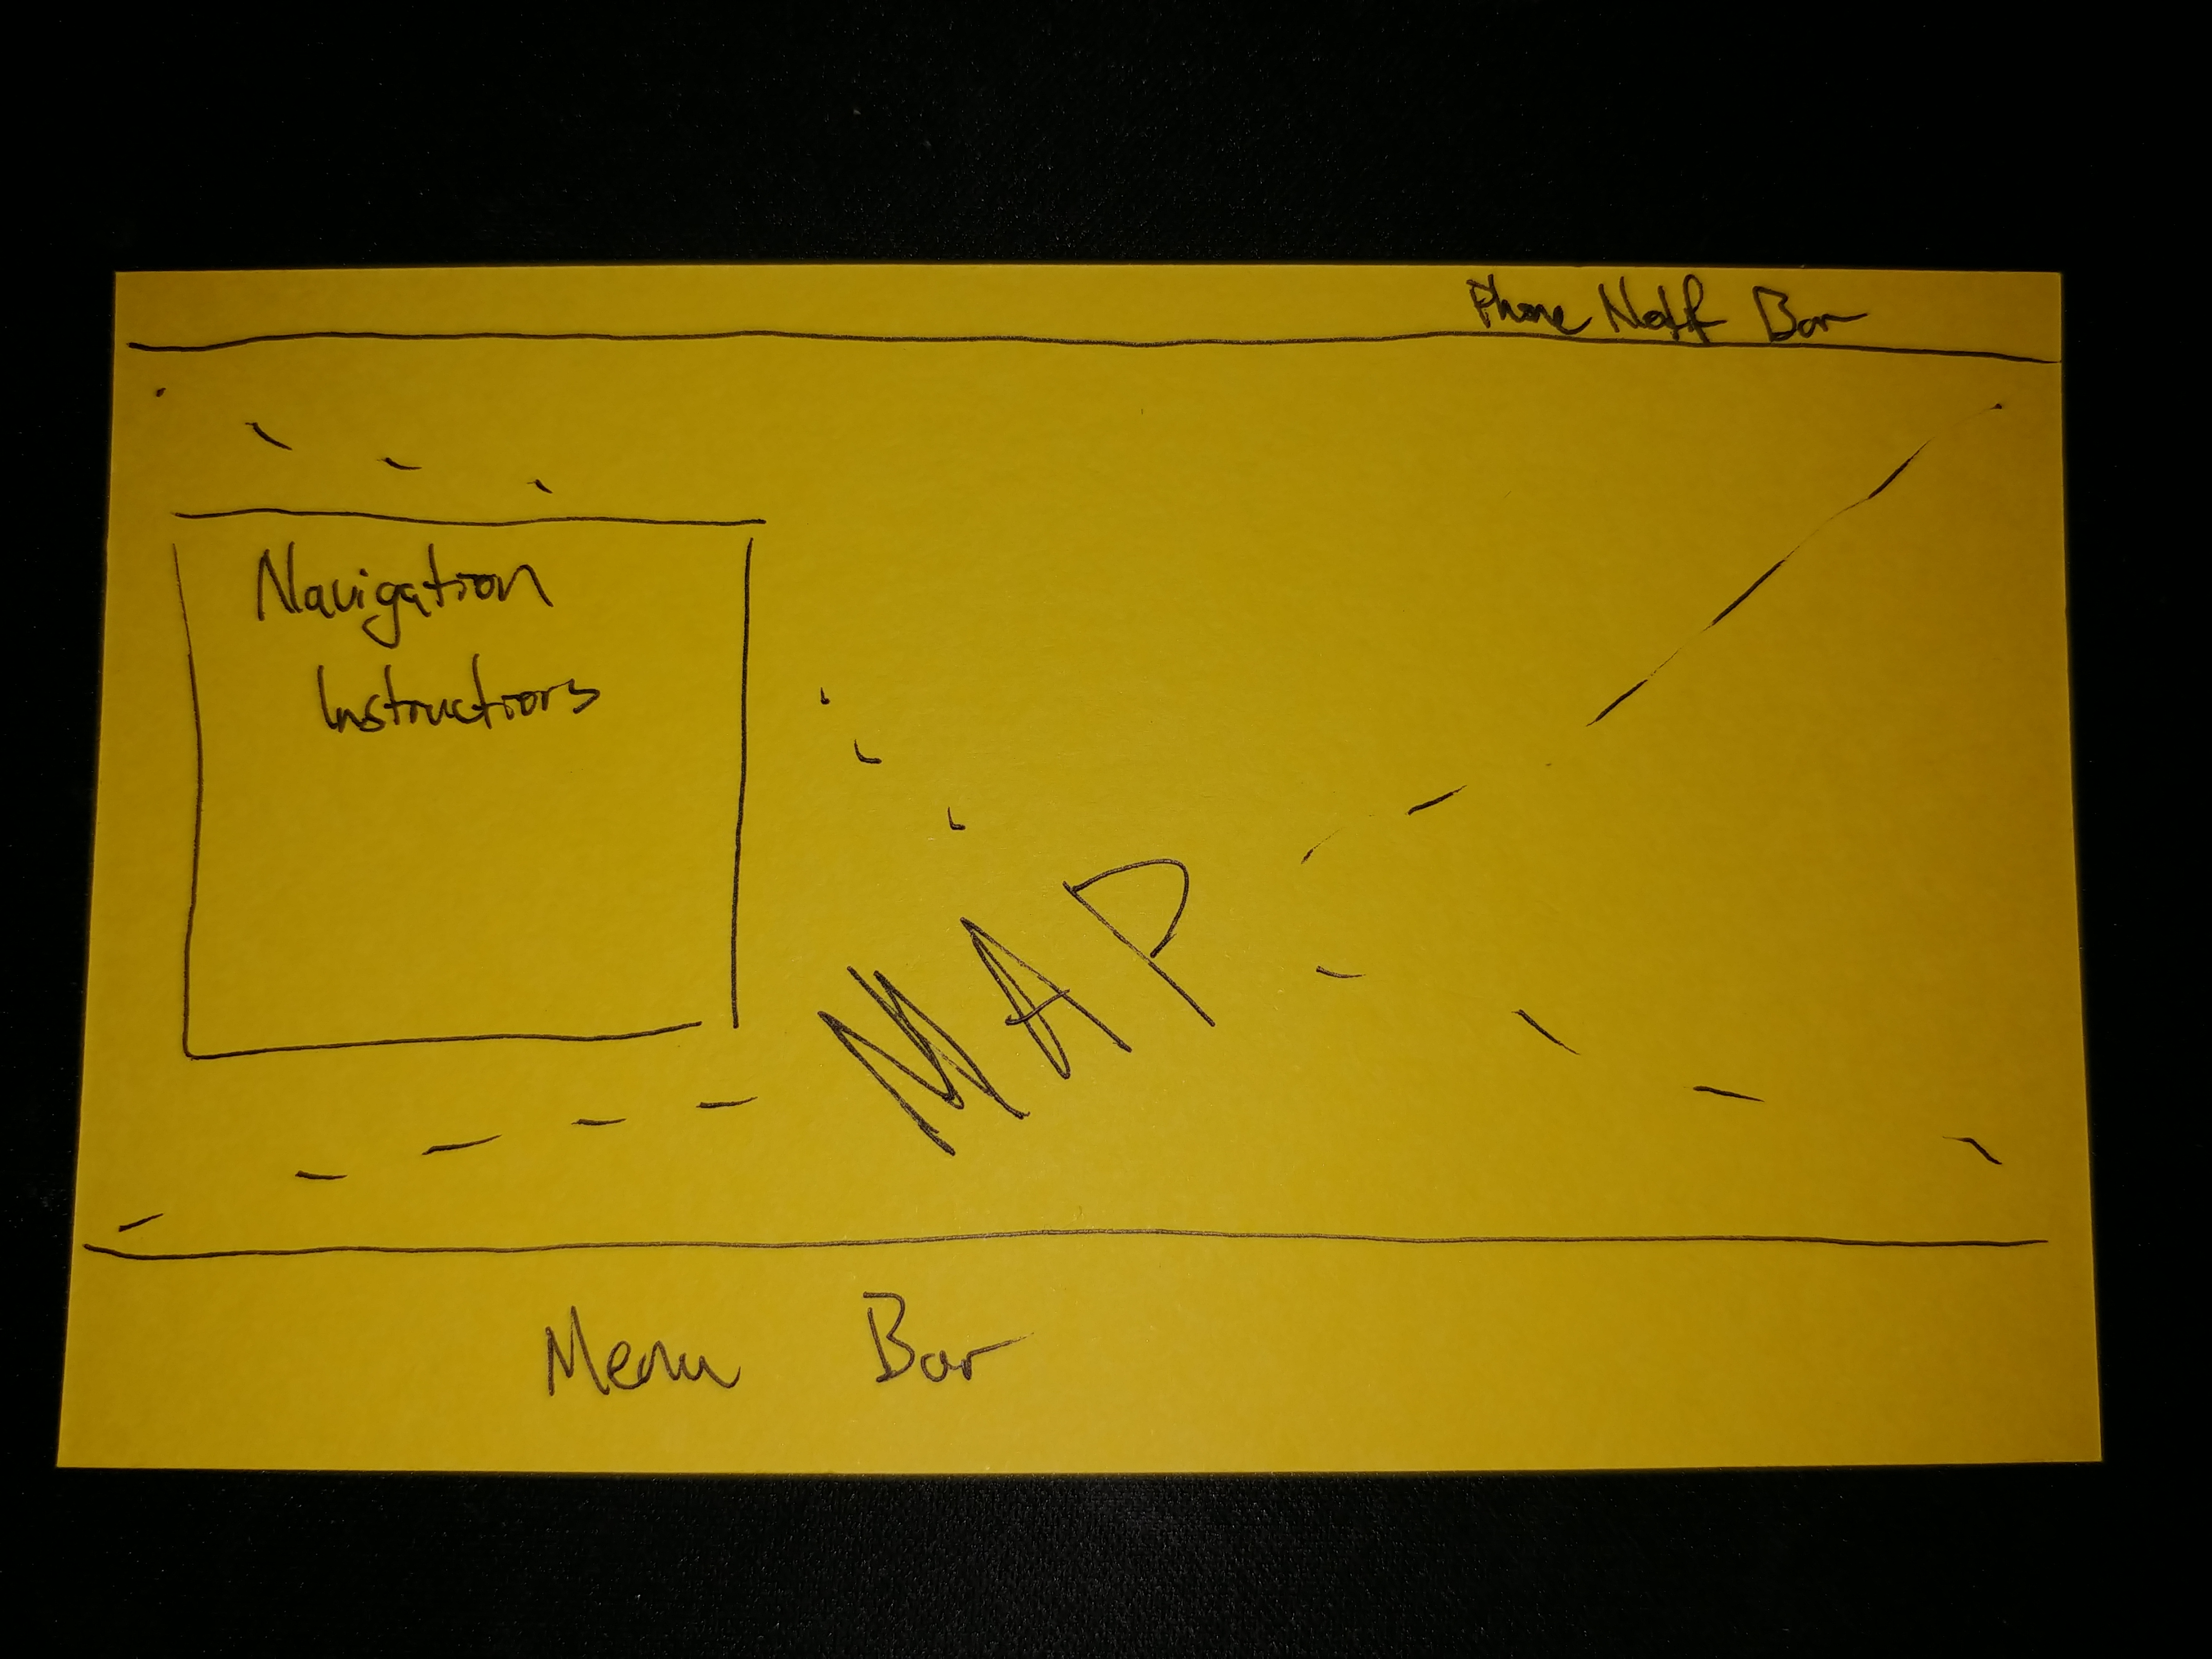 Phone Notf Bar
Navigation
Instructions
MAP
Menu Bar